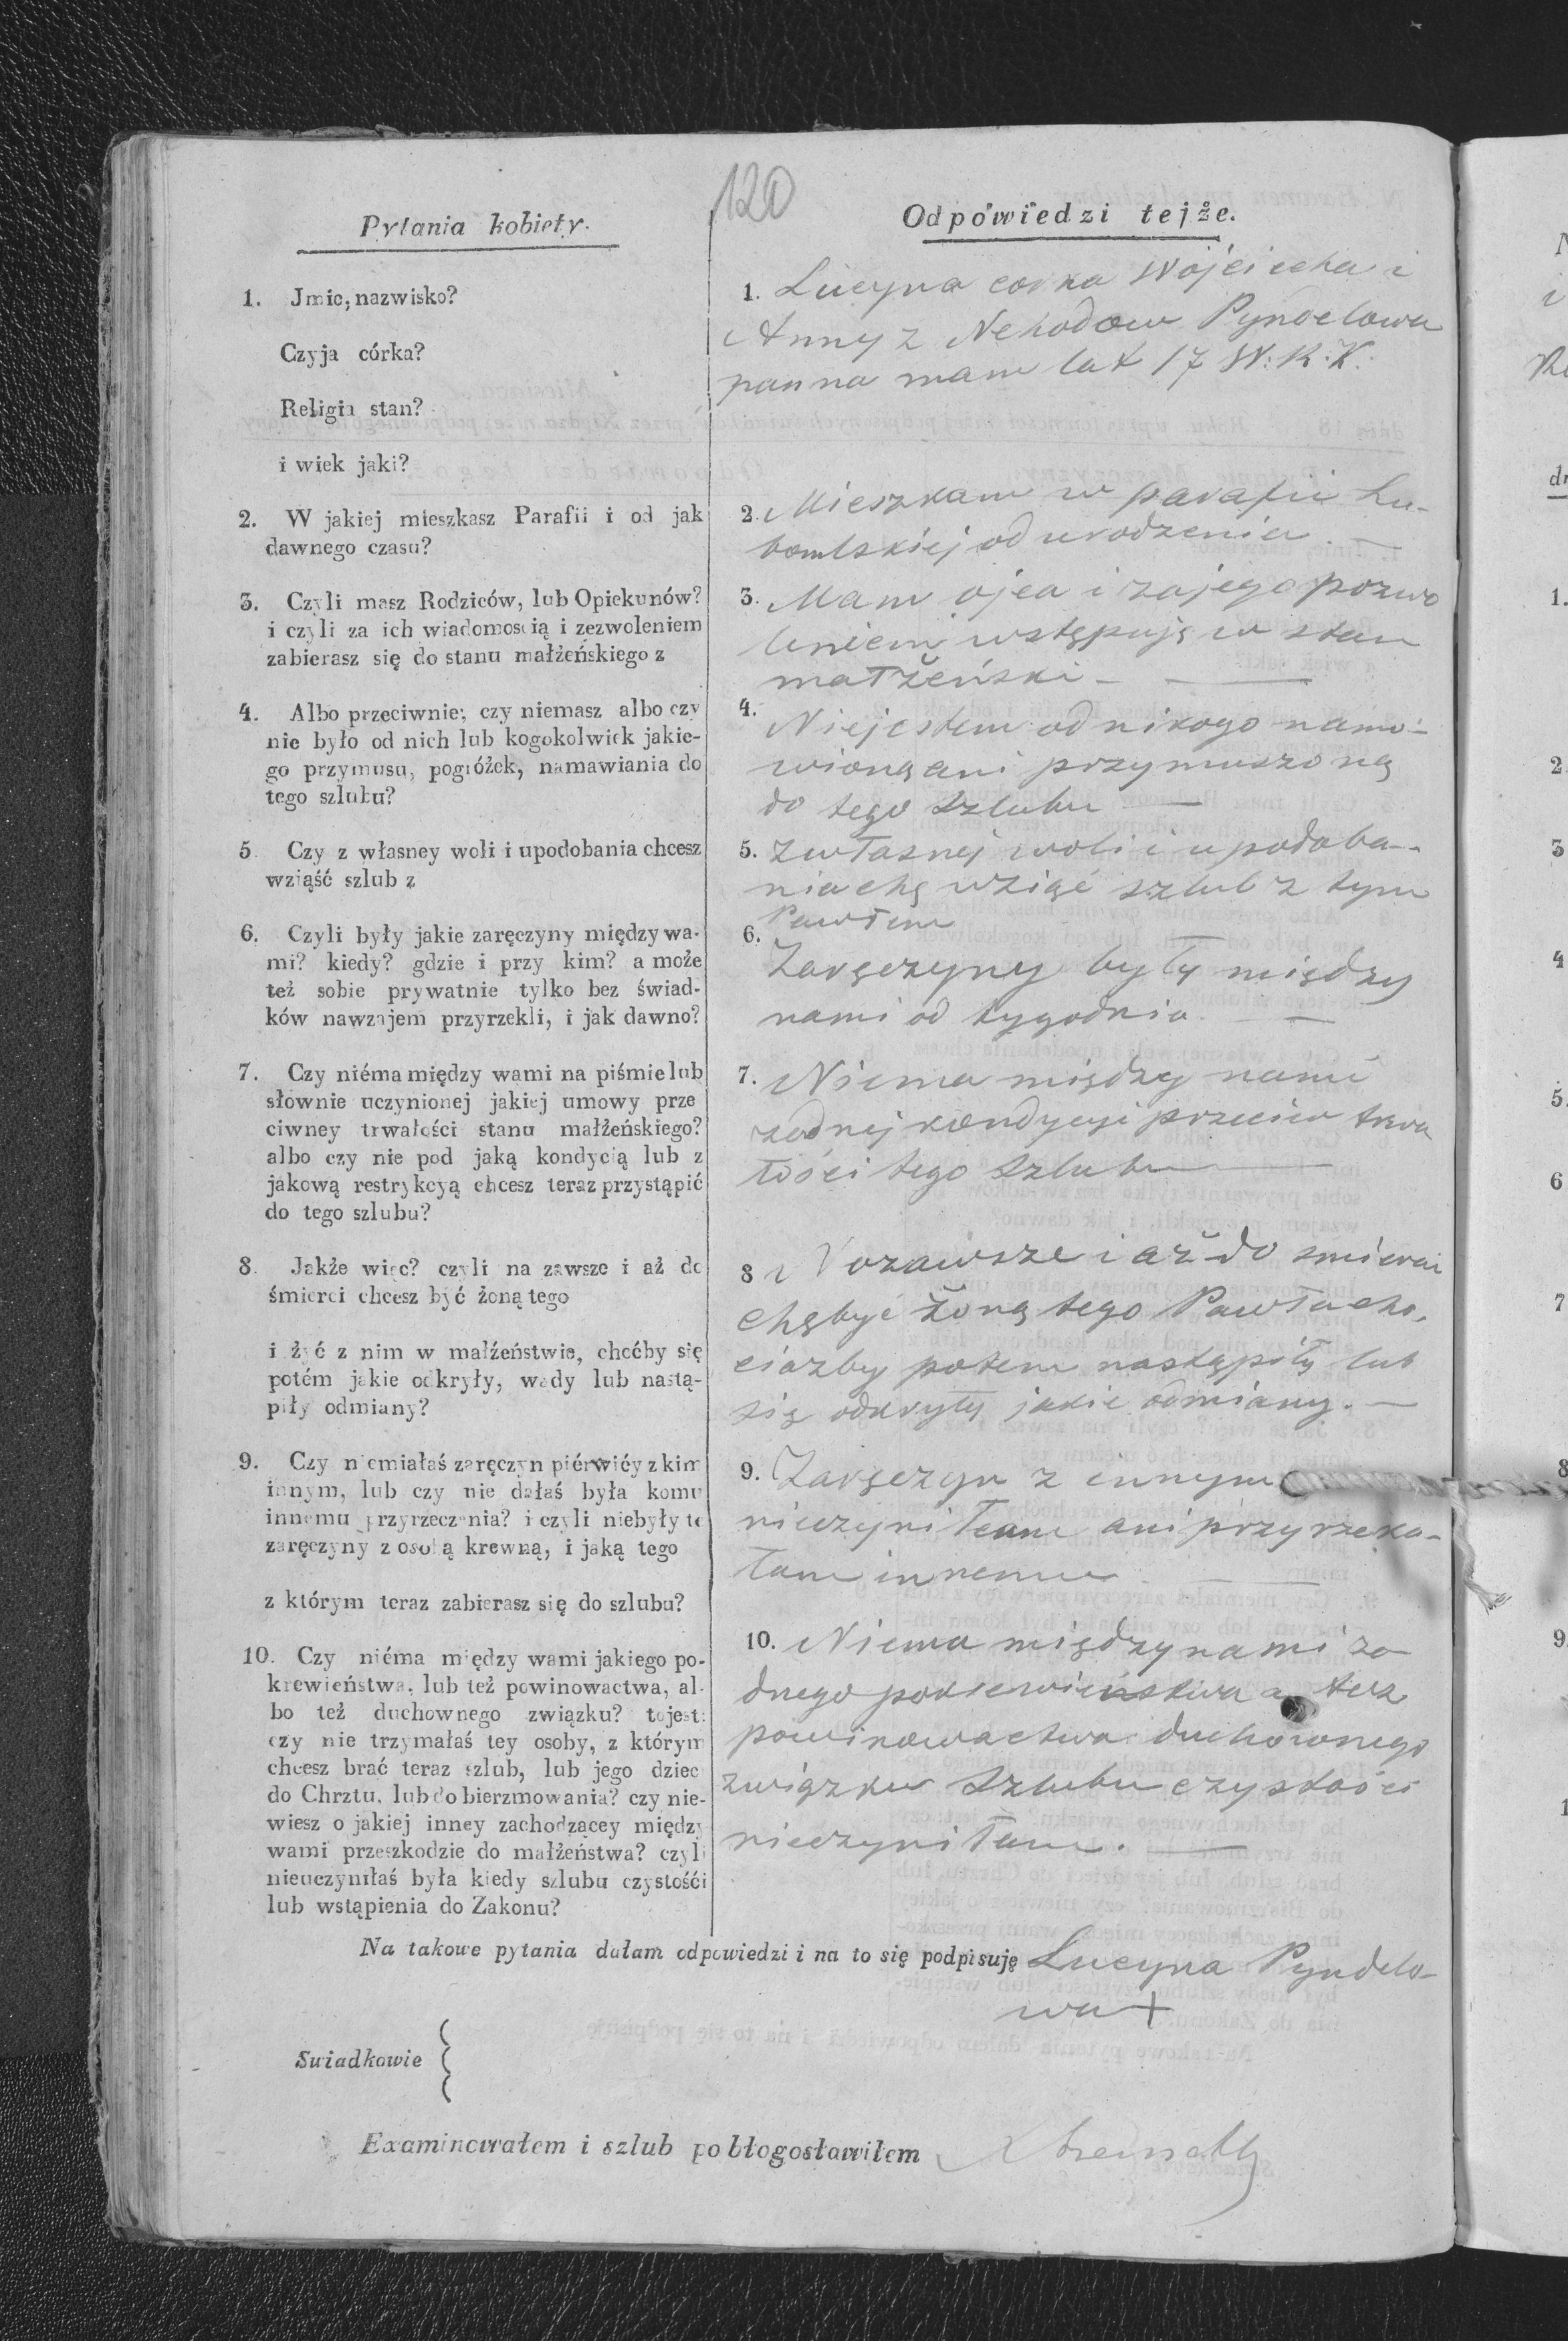 120
Pytania kobiety.
Odpowiedzi tejże.
1. Jmie, nazwisko?
Czyja córka?
Religia stan?
i wiek jaki?
1. Lucyna corka Wojciecha i
Anny z Nehodow Pyndelowa
panna mam lat 17 W: R: K:
2. W jakiej mieszkasz Parafii i od jak
dawnego czasu?
2. Mieszkam w parafii Lu-
bomlskiej od urodzenia. —
3. Czyli masz Rodziców, lub Opiekunów?
i czyli za ich wiadomością i zezwoleniem
zabierasz się do stanu małżeńskiego z
3. Mam ojca i zajego pozwo
leniem wstępuję w stan
małżeński — —
4. Albo przeciwnie; czy niemasz albo czy
nie było od nich lub kogokolwiek jakie-
go przymusu, pogróżek, namawiania do
tego szlubu?
4. Niejestem od nikogo namo-
wioną ani przymuszoną
do tego szlubu —
5 Czy z własney woli i upodobania chcesz
wziąść szlub z
5. zwłasnej woli i upodoba-
nia chę wziąć szlub z tym
Pawłem
6. Czyli były jakie zaręczyny między wa-
mi? kiedy? gdzie i przy kim? a może
też sobie prywatnie tylko bez świad-
ków nawzajem przyrzekli, i jak dawno?
6. Zaręczyny były między
nami od tygodnia. —
7. Czy niéma między wami na piśmie lub
słownie uczynionej jakiej umowy prze
ciwney trwałości stanu małżeńskiego?
albo czy nie pod jaką kondycią lub z
jakową restrykcyą chcesz teraz przystąpić
do tego szlubu?
7. Niema między nami
żadnej kondycyi przeciw trwa
łości tego szlubu —
8. Jakże więc? czyli na zawsze i aż do
śmierci chcesz być żoną tego
i żyć z nim w małżeństwie, choćby się
potém jakie odkryły, wady lub nastą-
piły odmiany?
8 Nazawsze i aż do smierci
chębyć żoną tego Pawła cho-
ciażby potem nastąpiły lub
się odkryły jakie odmiany. —
9. Czy niemiałaś zaręczyn piérwiéy z kim
innym, lub czy nie dałaś była komu
innemu przyrzeczenia? i czyli niebyły te
zaręczyny z osobą krewną, i jaką tego
z którym teraz zabierasz się do szlubu?
9. Zaręczyn z innym
nieczyniłam ani przyrzeka-
łam innemu —
10. Czy niéma między wami jakiego po-
krewieństwa, lub też powinowactwa, al-
bo też duchownego związku? tojest:
czy nie trzymałaś tey osoby, z którym
chcesz brać teraz szlub, lub jego dziec
do Chrztu, lub do bierzmowania? czy nie-
wiesz o jakiej inney zachodzącey między
wami przeszkodzie do małżeństwa? czyli
nieuczyniłaś była kiedy szlubu czystośći
lub wstąpienia do Zakonu?
10. Niema międzynami ża
dnego pokrewieństwa a też
powinowactwa duchownego
związku szlubu czystości
nieczyniłam. —
Na takowe pytania dałam odpowiedzi i na to się podpisuję Lucyna Pyndelo-
wa +
Swiadkowie
Examinowałem i szlub pobłogosławiłem